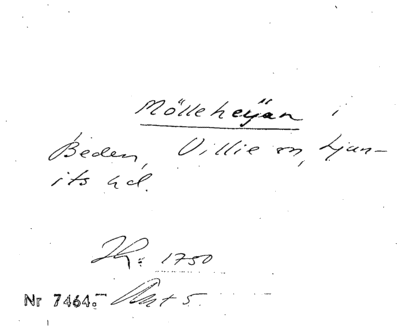 Mölleheÿan i
Beden, Villie sn, Ljun-
its hd.
Kr: 1750
Nr 7464. Ant 5.